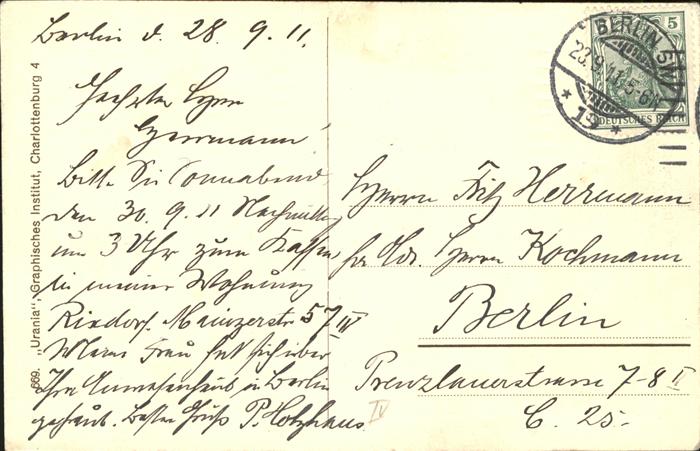 Berlin d. 28. 9. 11.
Geehrter Herr
Herrmann!
Bitte Sie Sonnabend
den 30. 9. 11 Nachmittag
um 3 Uhr zum Kaffee
in meiner Wohnung
Rixdorf. Mainzerstr 57 IV
Meine Frau hat sich über
Ihre Anwesenheit in Berlin
gefreut. Besten Gruß P. Holzhaus
Herrn Fritz Herrmann
Herrn Kochmann
Berlin
Prenzlauerstrasse 7-8 II
C. 25.
IV
669. „Urania", Graphisches Institut, Charlottenburg 4
BERLIN SW
19
5
DEUTSCHES REICH